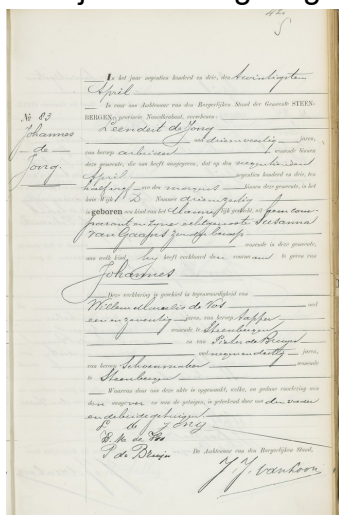 42
5
In het jaar negentien honderd en drie, den twintigsten
April
is voor ons Ambtenaar van den Burgerlijken Stand der Gemeente STEEN-
BERGEN, provincie Noordbrabant, verschenen:
Leendert de Jong
oud drieenveertig jaren,
van beroep arbeider wonende binnen
deze gemeente, die ons heeft aangegeven, dat op den negentienden
April negentien honderd en drie, ten
half vier ure des morgens binnen deze gemeente, in het
huis Wijk D Nummer drieenzestig
is geboren een kind van het Mannelijk geslacht, uit zijn com-
parant en zijne echtgenoote Susanna
van Gaspers zonder beroep
wonende in deze gemeente,
aan welk kind hij heeft verklaard den voornaam te geven van
Johannes
Deze verklaring is geschied in tegenwoordigheid van
Willem Marelis de Vos oud
een en zeventig jaren, van beroep tapper
wonende te Steenbergen
en van Pieter de Bruijn
oud negenendertig jaren,
van beroep Schoenmaker wonende
te Steenbergen
Waarvan door ons deze akte is opgemaakt, welke, na gedane voorlezing aan
den aangever en aan de getuigen, is geteekend door ons den vader
en de beide getuigen
L de Jong
W. M. de Vos
P de Bruijn
De Ambtenaar van den Burgerlijken Stand,
J. J. van Loon
No 83
Johannes
de
Jong.